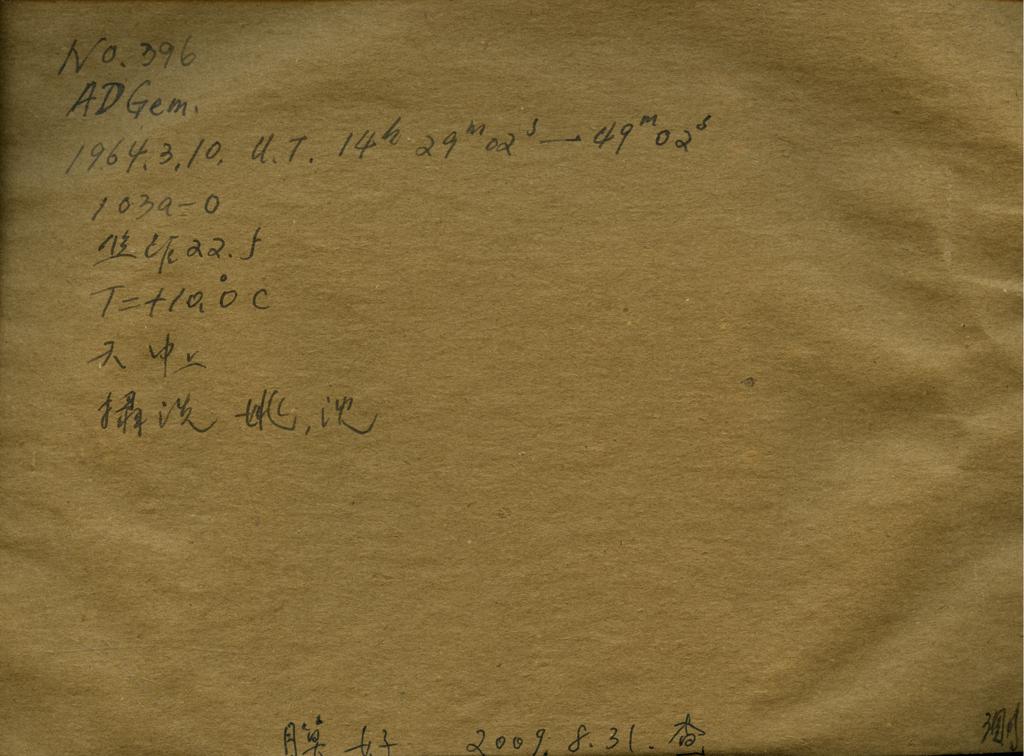 No. 396
AD Gem.
1964.3.10. U.T. 14h 29m 02s — 49m 02s
103a-O
焦距 22.5
T=+10.0°C
天中上
攝洗 姚,沈
膜好 2009.8.31.查
测